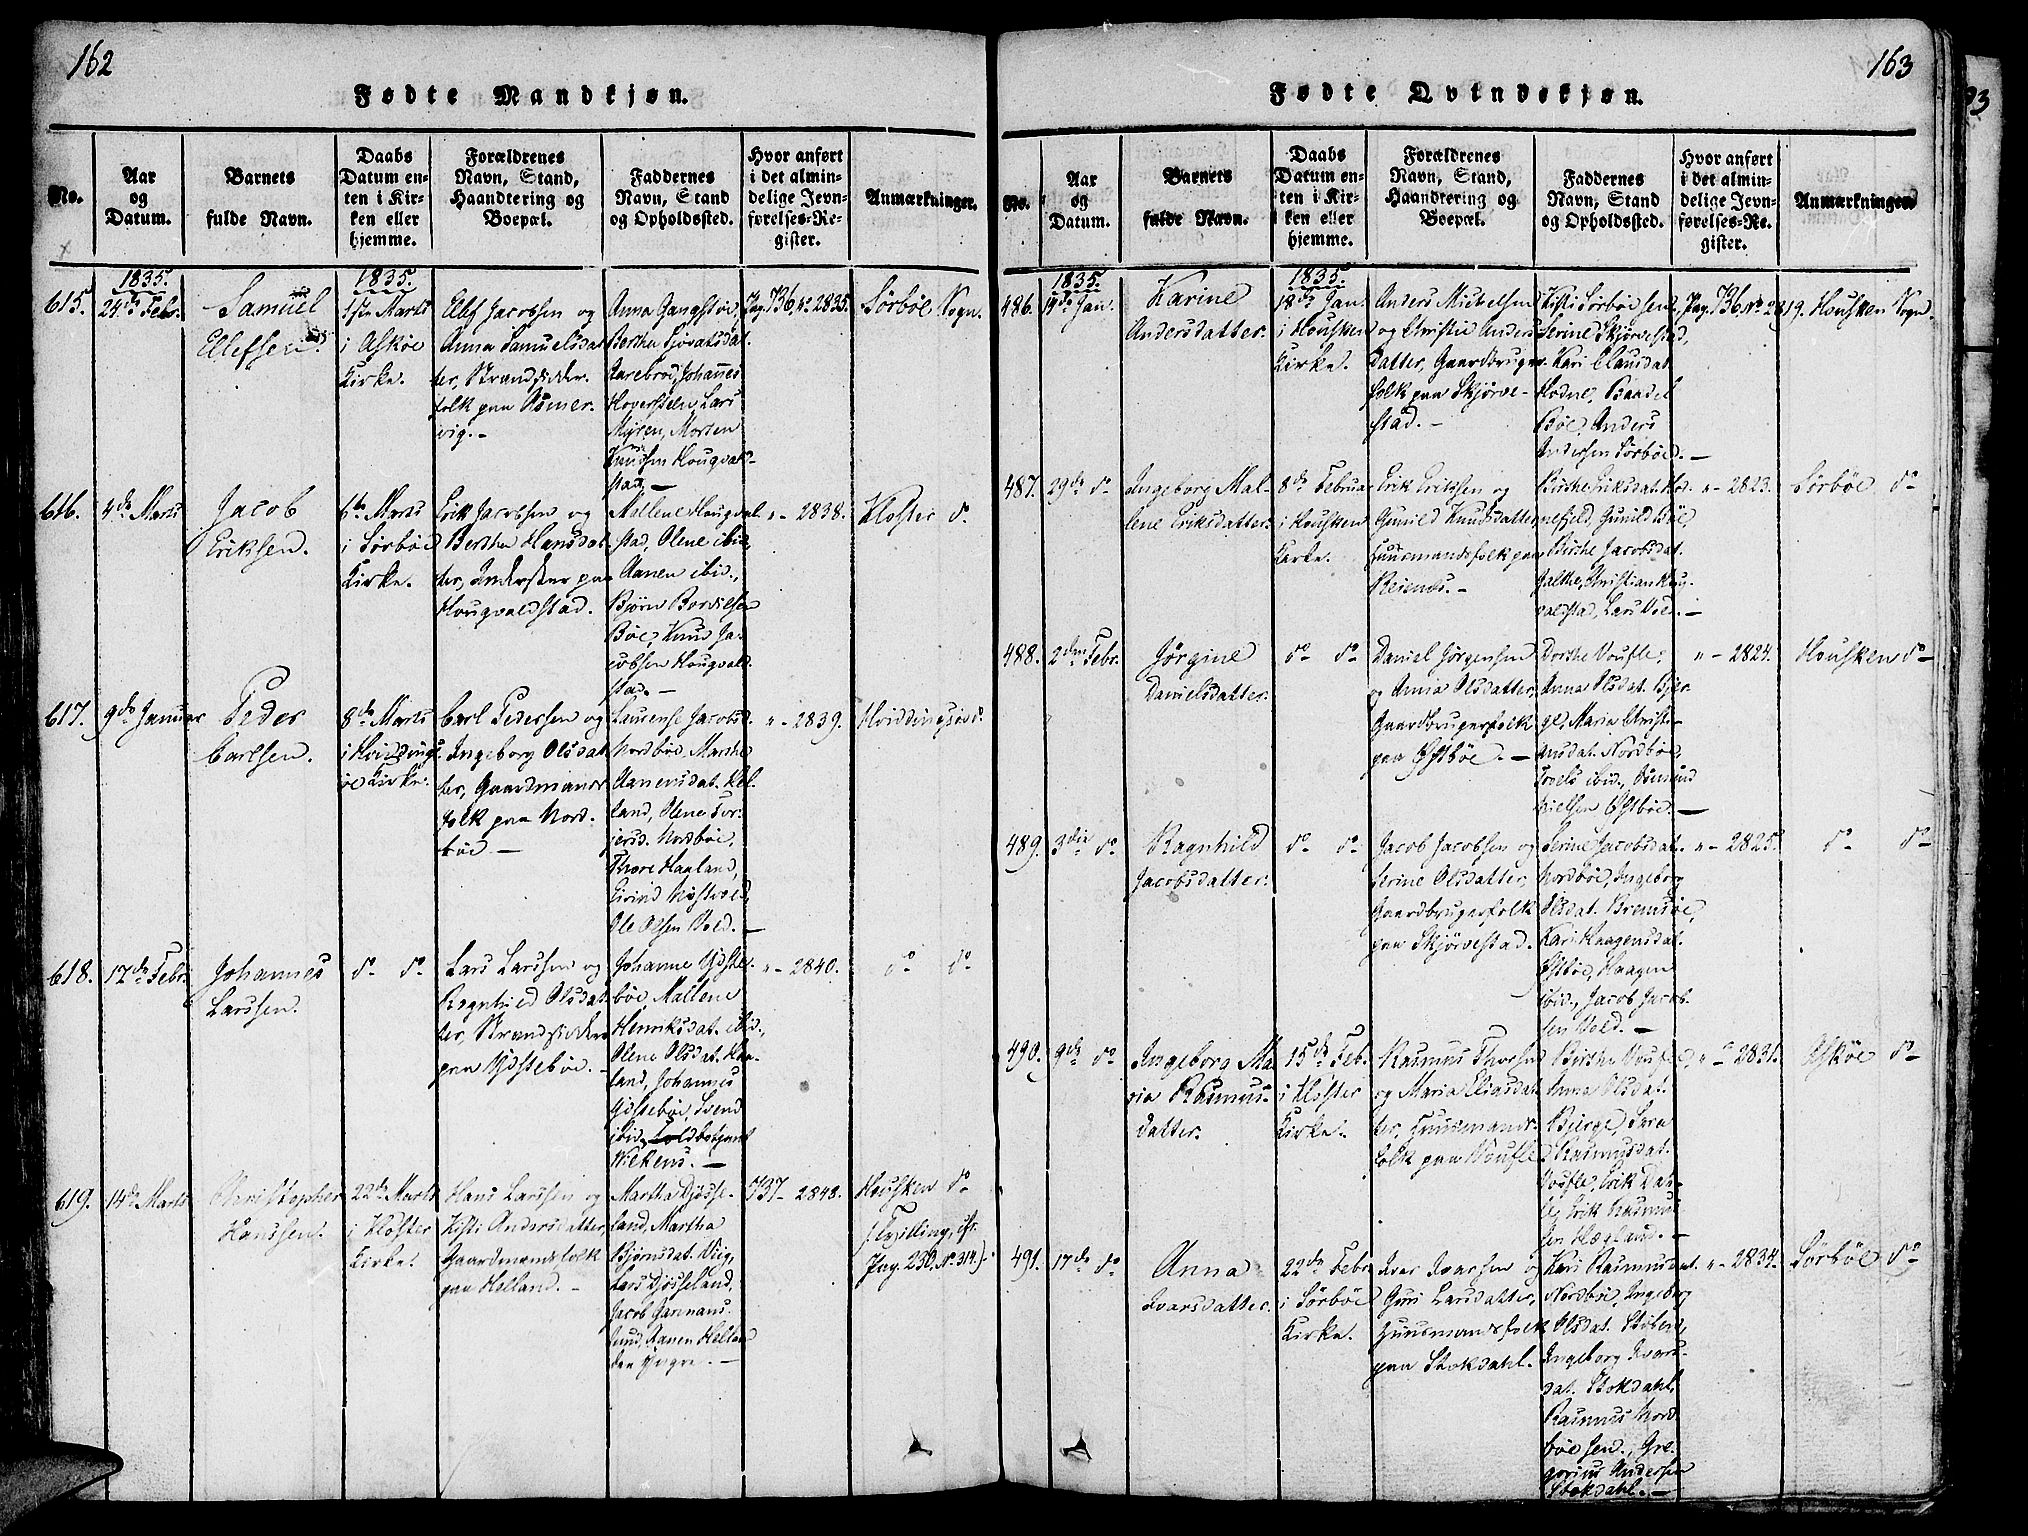 162
Fødte Mandkjøn.
No.
Aar
og
Datum.
Barnets
fulde Navn.
Daabs
Datum en-
ten i Kir-
ken eller
hjemme.
Forældrenes
Navn, Stand,
Haandtering og
Boepæl.
Faddernes
Navn, Stand
og Opholdssted.
Hvor anført
i det almin-
delige Jevn-
førelses-Re-
gister.
Anmærkninger.
615.
1835.
24de Febr.
Samuel
Ellefsen.
1835.
1ste Marts
i Askøe
Kirke.
Ellef Jacobsen og
Anna Samuelsdat
ter, Strandsidder-
folk paa Asmer-
vig.-
Bertha Sjovatsdat.
Aarebrod, Johannes
Hoverstein, Lars
Myren, Morten
Knudsen Hougval-
stad. -
Pag. 736, No. 2835.
Sørbøe Sogn.
616.
4de Marts
Jacob
Eriksen.
6te Marts
i Sørbøe
Kirke.
Erik Jacobsen og
Berthe Hansdat-
ter, Inderster paa
Hougvaldstad.
Mallene Hougval-
stad, Olene ibid.,
Aanen ibid.,
Bjørn Bordvilsen
Bøe, Knud Ja-
cobsen Hougvald-
stad. -
" - 2838.
Kloster do.
617.
9de Januar
Peder
Carlsen.
8de Marts
i Hvidings-
øe Kirke.
Carl Pedersen og
Ingeborg Olsdat-
ter, Gaardmands-
folk paa Nord-
bøe -
Laurense Jacobsd.
Nordbøe, Marthe
Aanensdat. Hel-
land, Olene Tor-
jersd. Nordbøe,
Thore Haaland,
Eivind Møstvold,
Ole Olsen Vold. -
" - 2839.
Hvidingsøe do.
618.
17de Febr.
Johannes
Larssen.
do do
Lars Larssen og
Ragnhild Olsdat-
ter, Strandsidder
paa Ydstebøe. -
Johanne Ydste-
bøe, Mallene
Henriksdat. ibid.,
Olene Olsdat. Haa-
land, Johannes
Ydstebøe, Svend
ibid., Toldbetjent
Wilkens. -
" - 2840.
do do
619.
14de Marts
Christopher
Hanssen.
22de Marts
i Kloster
Kirke.
Hans Larssen og
Kisti Andersdatter,
Gaardmandsfolk
paa Helland. -
Martha Djosse-
land, Martha
Bjørnsdat. Viig,
Lars Djosseland,
Jacob Garmans-
lund, Aanen Helland
den Yngre. -
737 - 2848.
Housken do
(Tvilling, cfr.
Pag. 230, No. 314.)
163
Fødte Qvindekjøn.
No.
Aar
og
Datum.
Barnets
fulde Navn.
Daabs
Datum en-
ten i Kir-
ken eller
hjemme.
Forældrenes
Navn, Stand,
Haandtering og
Boepæl.
Faddernes
Navn, Stand
og Opholdssted.
Hvor anført
i det almin-
delige Jevn-
førelses-Re-
gister.
Anmærkninger
486.
1835.
14de Jan.
Karine
Andersdatter.
1835.
18de Jan.
i Housken
Kirke.
Anders Mickelsen
og Christie Anders
datter, Gaardbruger-
folk paa Skjørve-
stad. -
Kisti Sørbøe sen.,
Serine Skjørvestad,
Kari Clausdat.
Hodne, Baadel
Bøe, Anders
Andersen Sørbøe. -
Pag. 736. No. 2819.
Housken Sogn.
487.
29de do
Ingeborg Mal-
lene Eriksdatter.
8de Februar
i Housken
Kirke.
Erik Eriksen og
Gunild Knudsdatter
Huusmandsfolk paa
Reienes. -
Birthe Eriksdat. Hod-
nefield, Gunild Bøe,
Birthe Jacobsdat.
Galthe, Christian Hug-
valdstad, Lars Vold. -
" - 2823.
Sørbøe do
488.
2den Febr.
Jørgine
Danielsdatter.
do do
Daniel Jørgensen
og Anna Olsdatter,
Gaardbrugerfolk
paa Østbøe. -
Dorthe Voufle,
Anna Olsdat. Bjer-
ge, Maria Christi-
ansdat. Nordbøe,
Troels ibid., Asmund
Nielsen Østbøe. -
" - 2824.
Housken do
489.
3die do
Ragnhild
Jacobsdatter.
do do
Jacob Jacobsen og
Serine Olsdatter,
Gaardbrugerfolk
paa Skjørvestad.
Serine Jacobsdat.
Nordbøe, Ingeborg
Olsdat. Bremsøe,
Kari Haagensdat.
Østbøe, Haagen
ibid., Jacob Jacob-
sen Vold. -
" - 2825.
do do
490.
9de do
Ingeborg Ma-
ria Rasmus-
datter.
15de Feb.
i Kloster
Kirke.
Rasmus Thorsen
og Maria Eliasdat-
ter, Huusmands-
folk paa Voufle
Birthe Voufle,
Anna Olsdat.
Bjerge, Sara
Rasmusdat.
Voufle, Erik Dat-
le, Erik Rasmu-
sen Hægland. -
" - 2831.
Askøe do
491.
17de do
Anna
Ivarsdatter.
22de Febr.
i Sørbøe
Kirke.
Ivar Ivarsen og
Guri Larsdatter,
Huusmandsfolk
paa Stokdahl.
Kari Rasmusdat.
Nordbøe, Ingeborg
Olsdat.
Ingeborg Ivars-
dat. Stokdahl,
Rasmus Nord-
bøe sen., Gre-
gorius Andersen
Stokdahl. -
" - 2834.
Sørbøe do